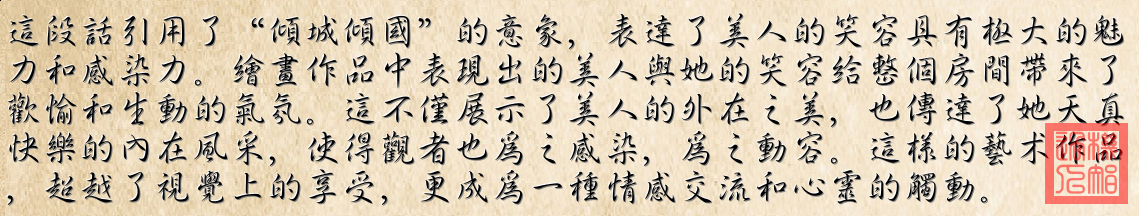 這段話引用了“傾城傾國”的意象，表達了美人的笑容具有極大的魅
力和感染力。繪畫作品中表現出的美人與她的笑容給整個房間帶來了
歡愉和生動的氣氛。這不僅展示了美人的外在之美，也傳達了她天真
快樂的內在風采，使得觀者也爲之感染，爲之動容。這樣的藝术作品
，超越了視覺上的享受，更成爲一種情感交流和心靈的觸動。